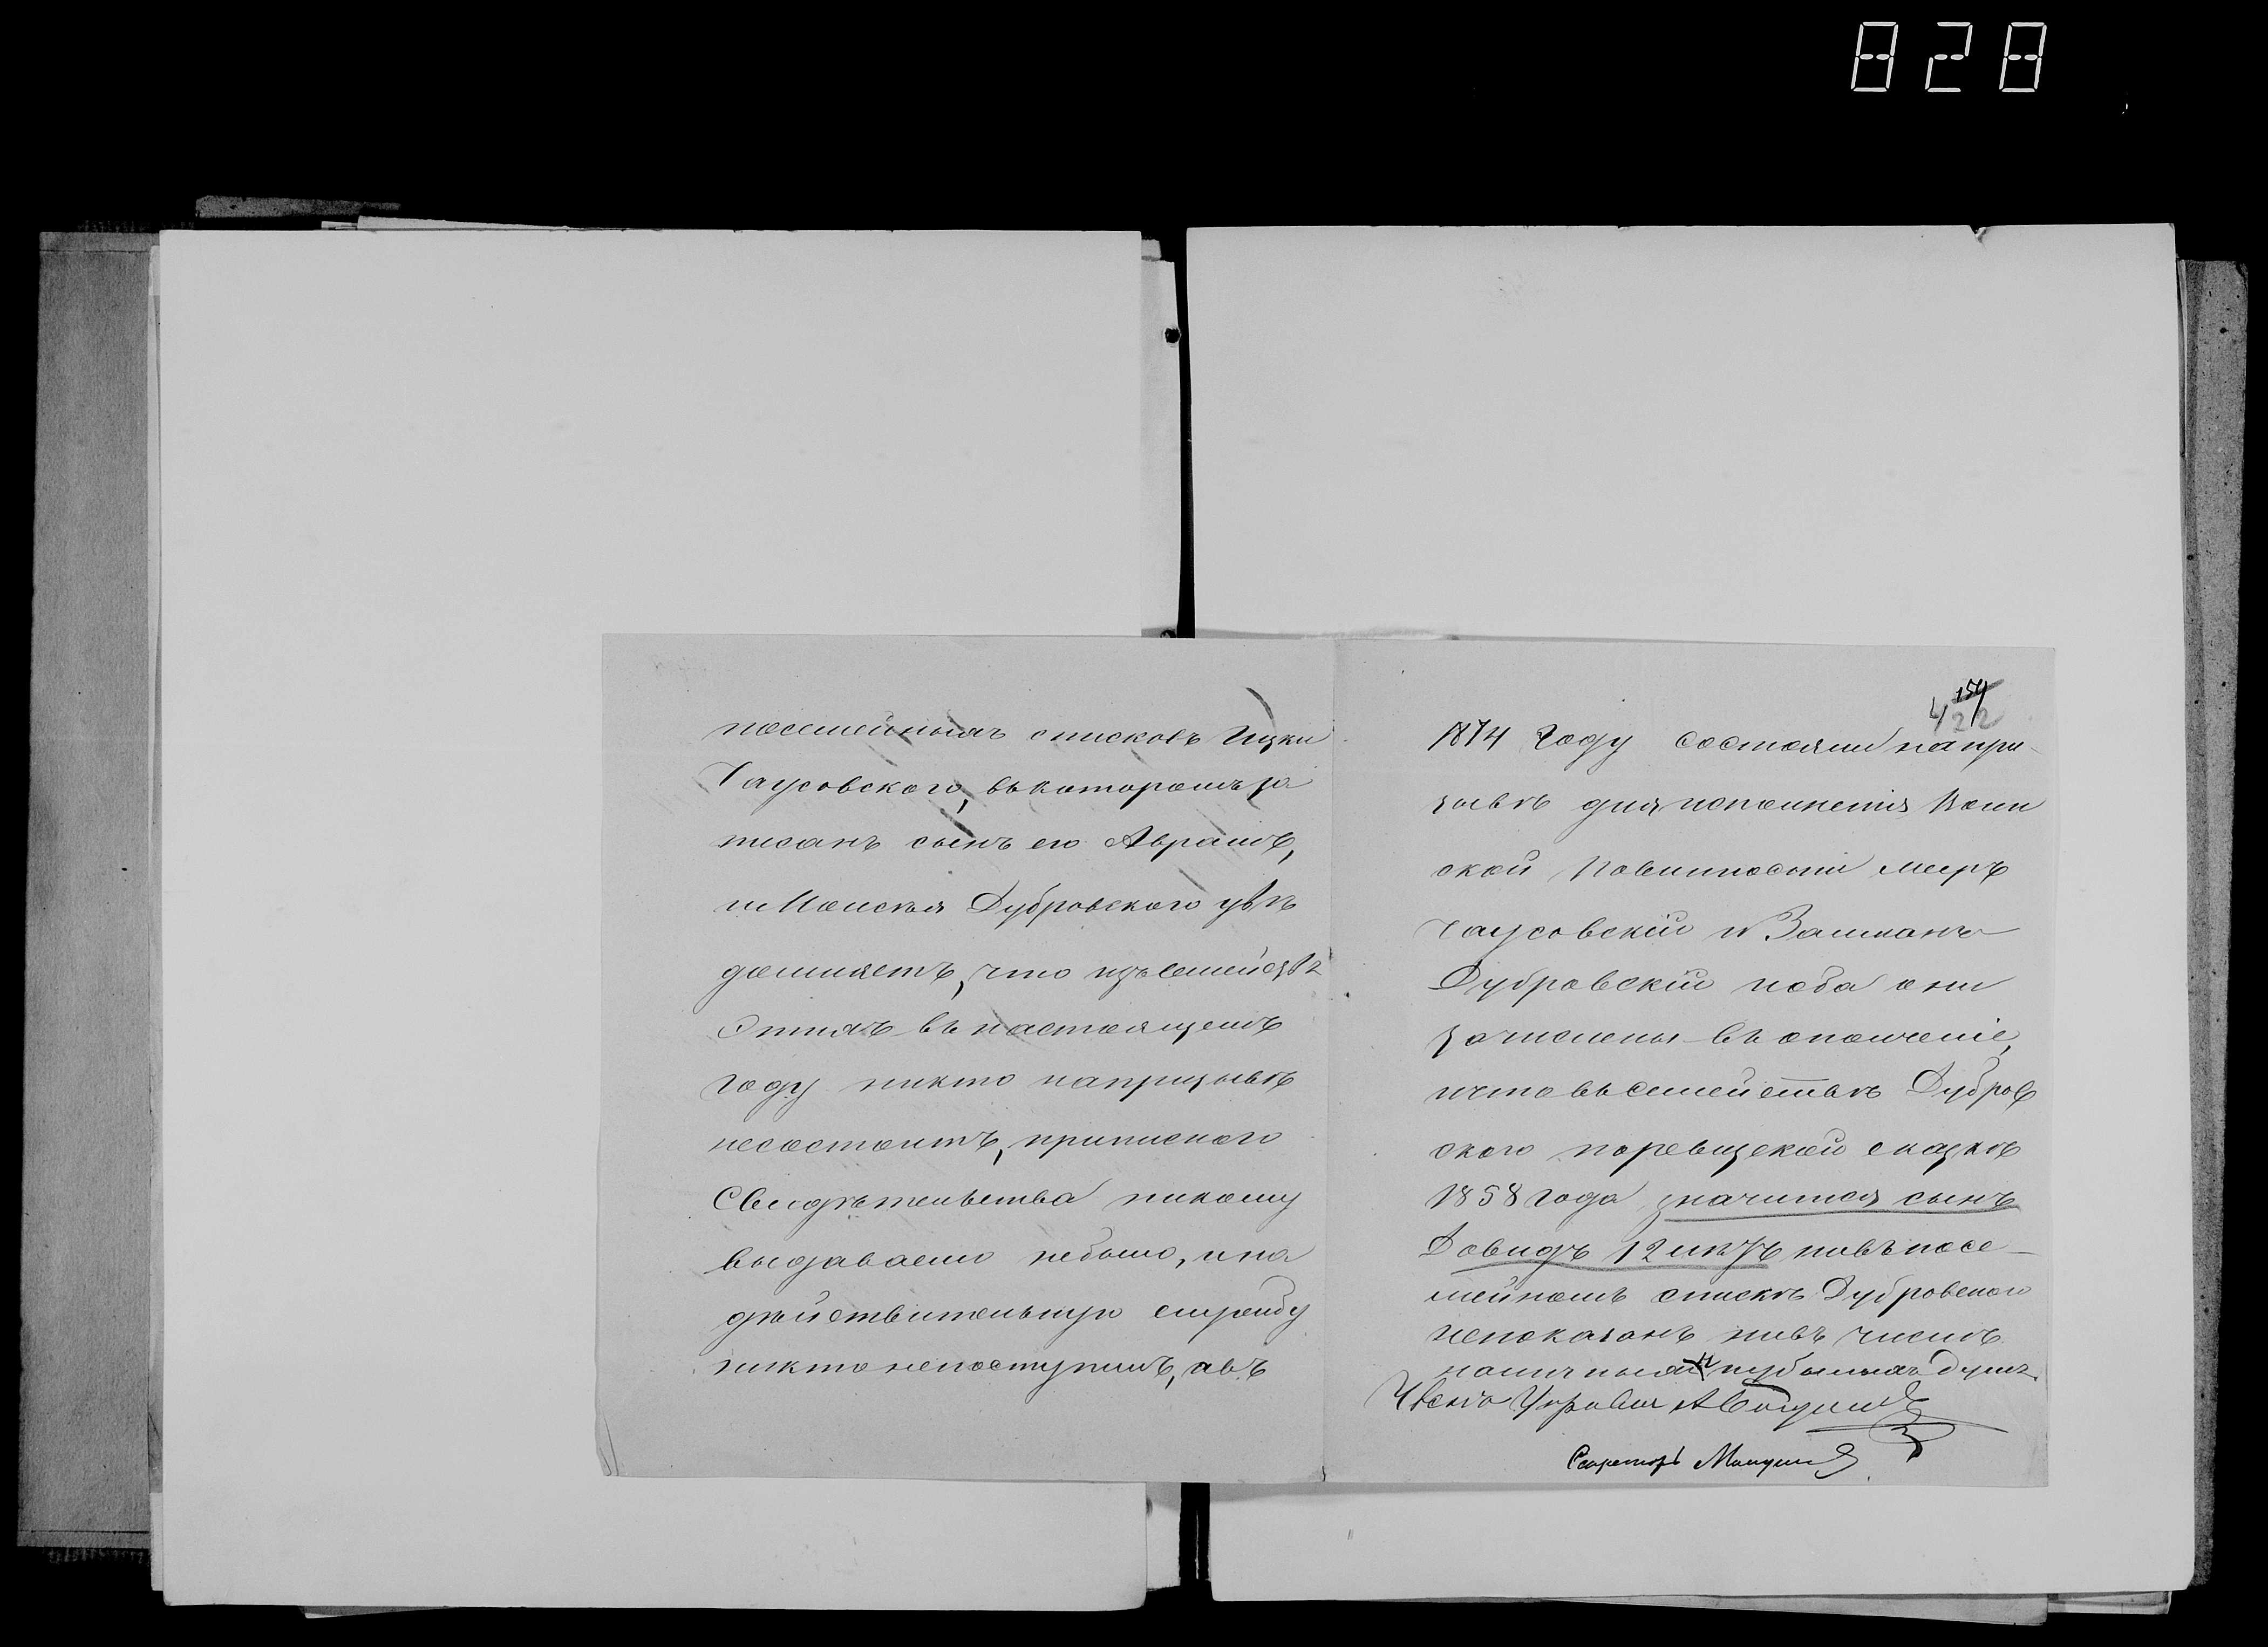 828
посемейныхъ списковъ Ицки
Гаусовского, въ которомъ за
писанъ сынъ его Аврамъ,
и Монселя Дубровского увѣ
домляетъ, что изъ семействъ
Этихъ въ настоящемъ
году никто на призывѣ
несостоитъ, приписного
Свидѣтельства никому
выдаваемо небыло, и на
дѣйствительную службу
никто непоступилъ, а въ
154
22
1874 году состояли на при-
зывѣ для исполненія Воин
ской Повинности Меиръ
Гаусовскій и Залманъ
Дубровскій и оба они
зачислены въ ополченіе,
и что въ семействѣ Дубров
ского по ревизской сказкѣ
1858 года значится сынъ
Довидъ 12 лѣтъ ни въ посе-
мейномъ спискѣ Дубровского
непоказанъ ни въ числѣ
наличныхъ и убылыхъ душъ.
Членъ Управы
Секретарь